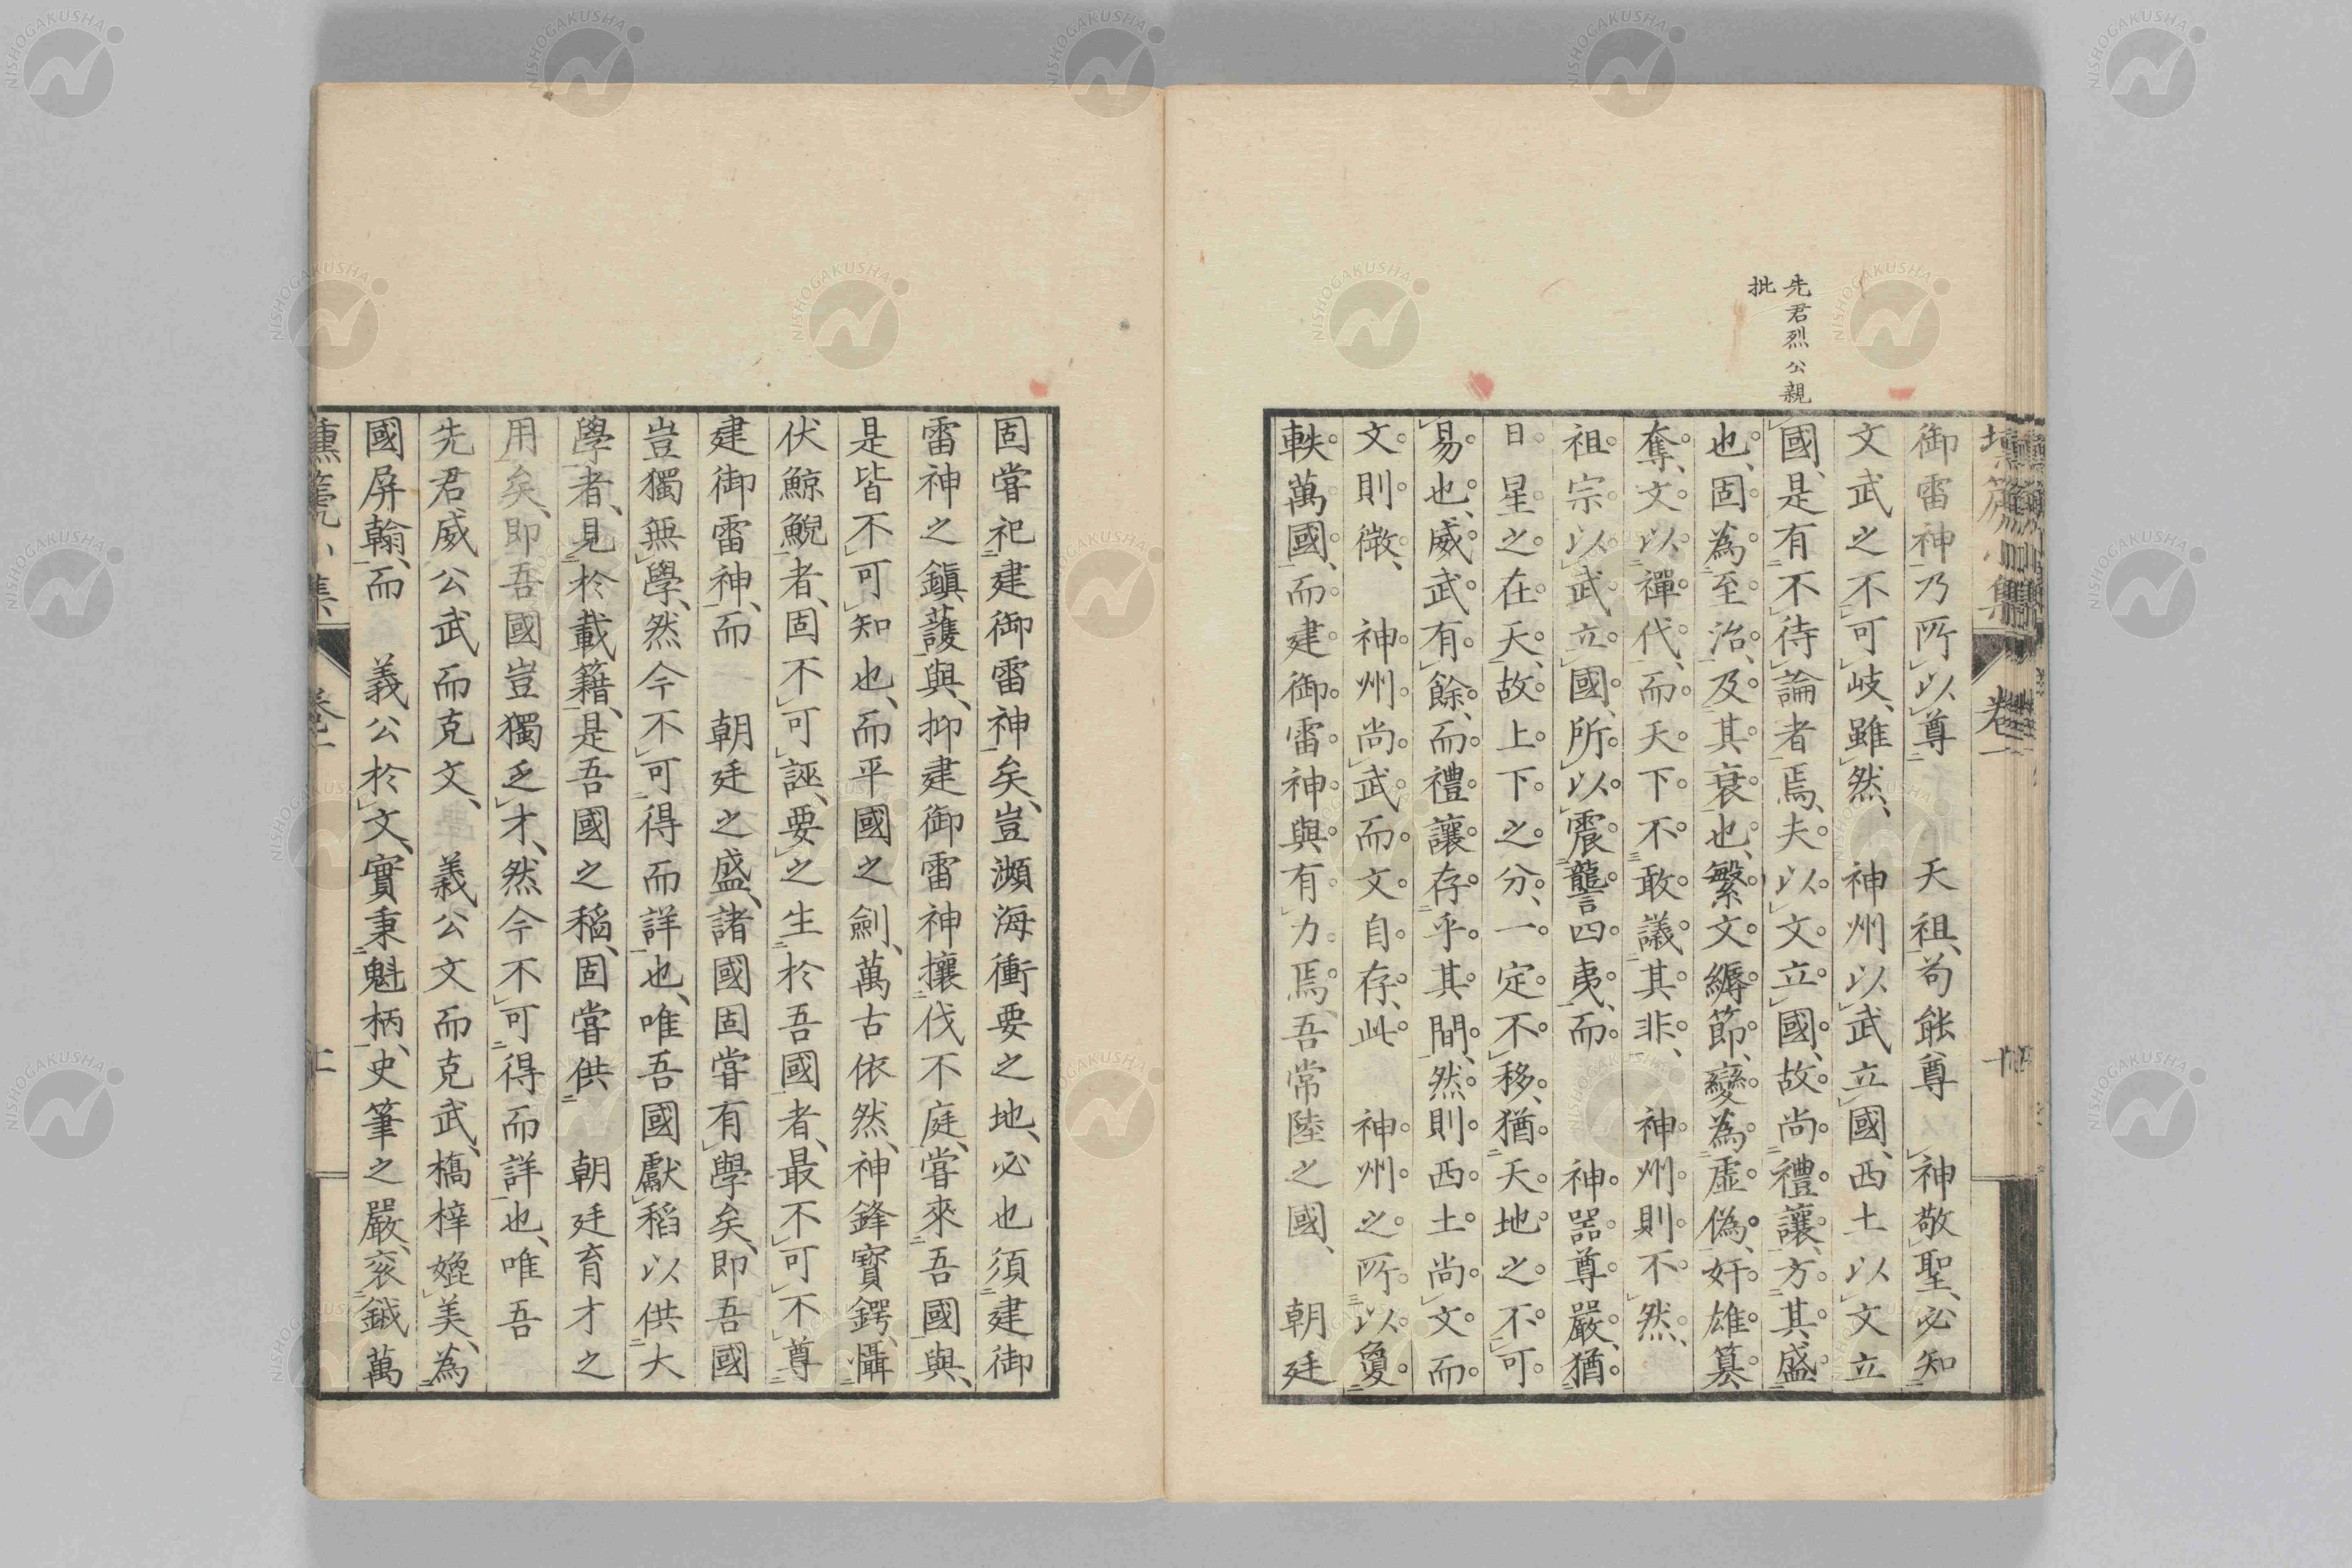 先君烈公親
批
御雷神乃所以尊　天祖、苟能尊　神敬聖、必知
文武之不可岐、雖然、　神州以武立國、西土以文立
國、是有不待論者焉、夫以文立國、故尚禮讓、方其盛
也、固為至治、及其衰也、繁文縟節、變為虛偽、奸雄簒
奪、文以禪代、而天下不敢議其非、　神州則不然、
祖宗以武立國、所以震讋四夷、而　神器尊嚴、猶
日星之在天、故上下之分、一定不移、猶天地之不可
易也、威武有餘、而禮讓存乎其間、然則西土尚文而
文則徵、　神州尚武而文自存、此　神州之所以敻
軼萬國、而建御雷神與有力焉、吾常陸之國、　朝廷
固嘗祀建御雷神矣、豈瀕海衝要之地、必也須建御
雷神之鎮護與、抑建御雷神攘伐不庭、嘗來吾國與、
是皆不可知也、而平國之劍、萬古依然、神鋒寶鍔、懾
伏鯨鯢者、固不可誣、要之生於吾國者、最不可不尊
建御雷神、而　朝廷之盛、諸國固嘗有學矣、即吾國
豈獨無學、然今不可得而詳也、唯吾國獻稻以供大
學者、見於載籍、是吾國之稻、固嘗供　朝廷育才之
用矣、即吾國豈獨乏才、然今不可得而詳也、唯吾
先君威公武而克文、　義公文而克武、橋梓媲美、為
國屏翰、而　義公於文、實秉魁柄、史筆之嚴、袞鉞萬
壎篪小集
卷一